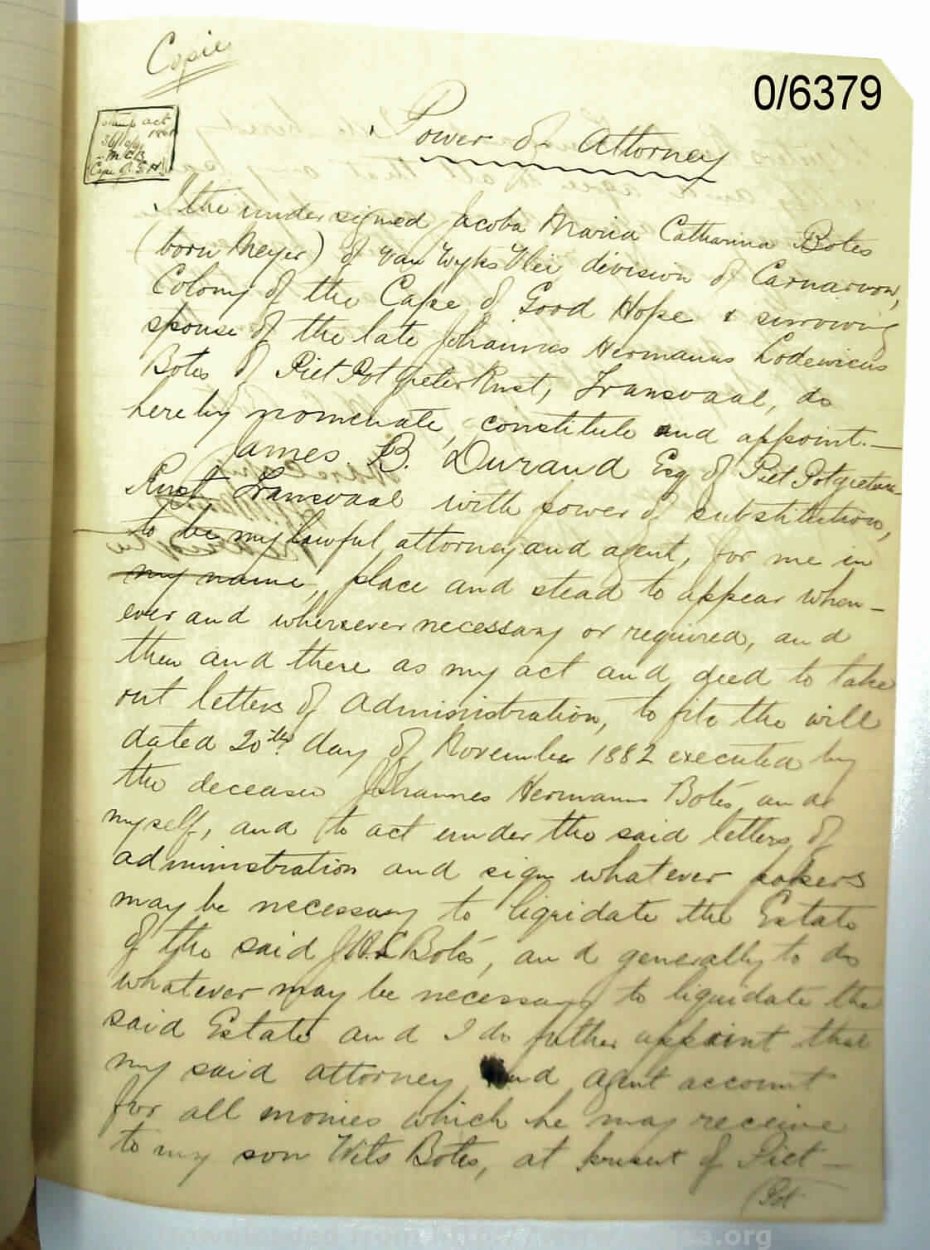 Copie
0/6379
Stamp act
Cape of G. H.
Power of Attorney
I the undersigned Jacoba Maria Catharina Botes
(born Meyer) of Van Wyks Vlei division of Carnarvon,
Colony of the Cape of Good Hope & surviving
spouse of the late Johannes Hermanus Lodewicus
Botes of Piet Potgieter Rust, Transvaal, do
hereby nomenate, constitute and appoint.—
James B. Durand Esq of Piet Potgieters
Rust Transvaal with power of substitution,
to be my lawful attorney and agent, for me in
my name, place and stead to appear when-
ever and wheresever necessary or required, and
then and there as my act and deed to take
out letters of administration, to file the will
dated 20th day of November 1882 executed by
the deceased Johannes Hermanus Botes, and
myself, and to act under the said letters of
administration and sign whatever papers
may be necessary to liquidate the Estate
of the said J.H.L Botes, and generally to do
whatever may be necessary to liquidate the
said Estate and I do futher appoint that
my said attorney and agent account
for all monies which he may receive
to my son Botes, at present of Piet-
(Pot